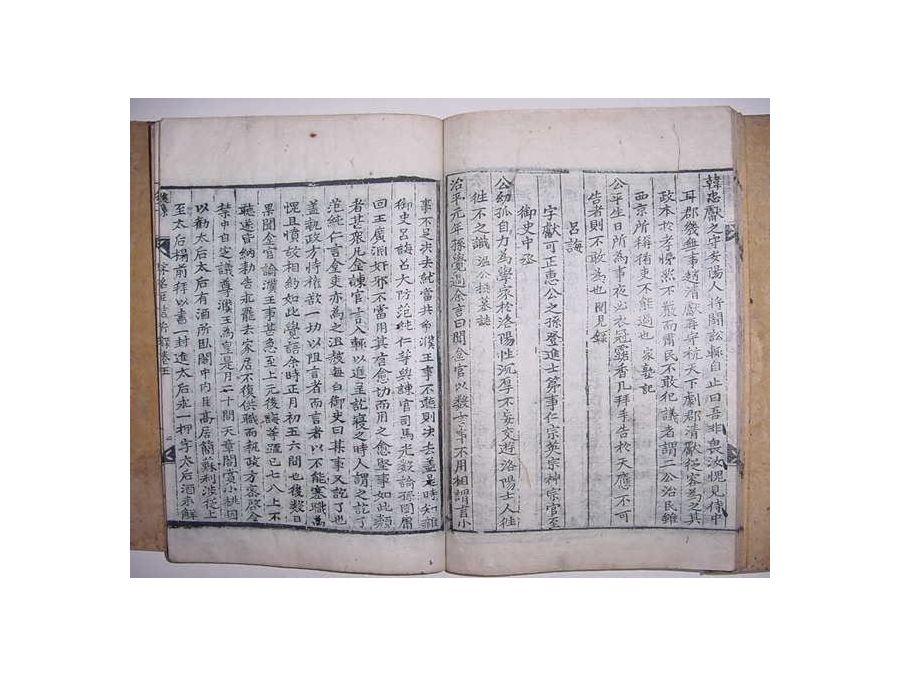 韓忠獻之守安陽人將鬪訟輒自止曰吾非畏法愧見侍中
耳郡幾無事趙清獻再守杭天下劇郡清獻從容為之其
政本於孝悌然不嚴而肅民不敢犯議者謂二公治民雖
西京所稱循吏不能過也 家塾記
公平生日所為事夜必衣冠露香几拜手告於天應不可
告者則不敢為也 聞見錄
呂誨
字獻可正惠公之孫登進士第事仁宗英宗神宗官至
御史中丞
公幼孤自力為學家於洛陽性沉厚不妄交遊洛陽士人往
往不之識 溫公撰墓誌
治平元年孫覺過余言曰聞金官以 事不用相謂言小
事不足決去就當共帝濮王事不進則決去蓋是時知雜
御史呂誨呂大防范純仁等與諫官司馬光 論孫固
回王廣淵奸邪不當用其有愈切而用之愈堅事如此類
者甚衆凡金諫官言人 以進呈訖寢之時人謂之訖了
范純仁言金吏亦為之沮 每白御史曰某事又訖了也
蓋執政方恃權 一切以阻言者而言者以不能塞職為
愧且憤故相約如此覺語余時正月初五六間也後數日
果聞金官論濮王事甚急至上元後誨等 已七八上不
聽遂皆納勑告乖罷去家居不復供職而執政方 啓
禁中自定議尊濮王為皇是月二十間天章閣賞小桃因
以勸太后太后有酒所臥閣中內 高居簡蘇利涉從上
至太后榻前拜以書一封進太后求一押字太后酒未解